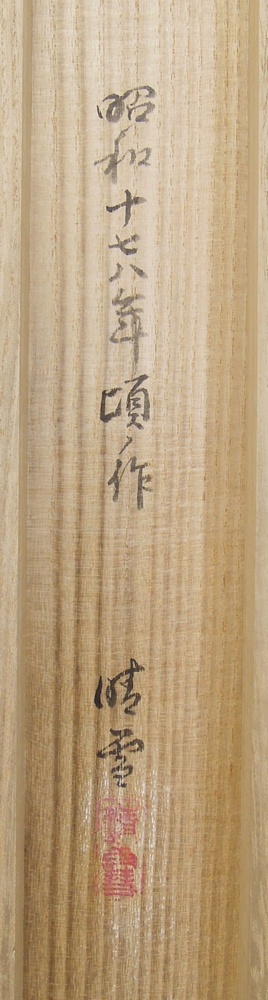 昭和十七八年頃作
晴雪